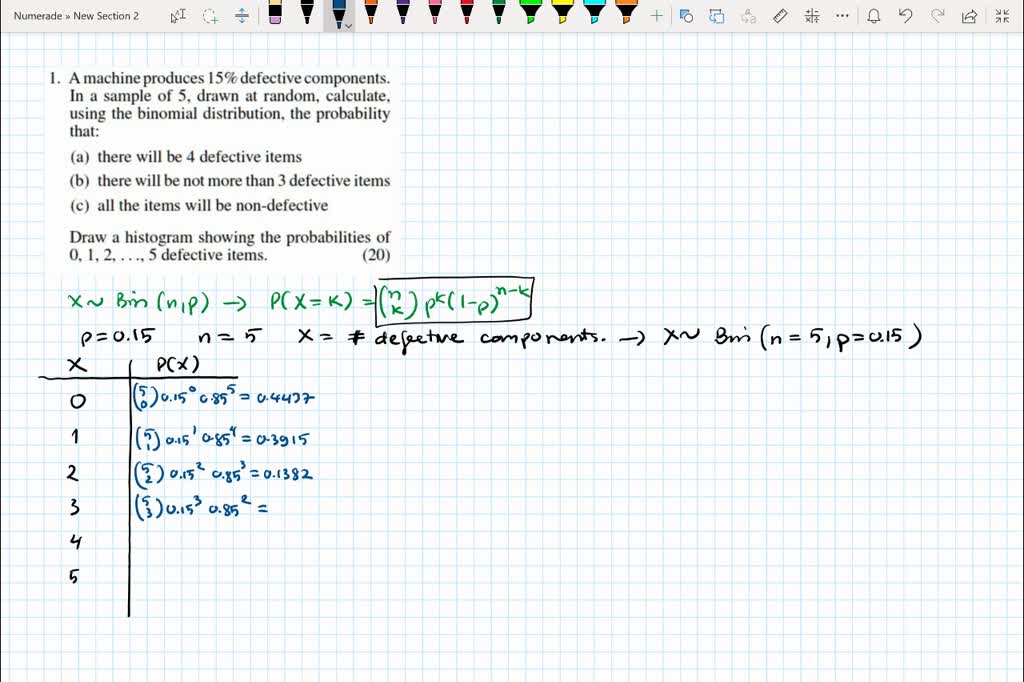 Numerade » New Section 2
1. A machine produces 15% defective components.
In a sample of 5, drawn at random, calculate,
using the binomial distribution, the probability
that:
(a) there will be 4 defective items
(b) there will be not more than 3 defective items
(c) all the items will be non-defective
Draw a histogram showing the probabilities of
0, 1, 2, …, 5 defective items. (20)
X ~ Bin (n,p) → P(X = K) = (n k) p^k (1-p)^n-k
p = 0.15 n = 5 X = # defective components. → X ~ Bin (n = 5, p = 0.15)
X P(X)
0 (5 0) 0.15^0 0.85^5 = 0.4437
1 (5 1) 0.15^1 0.85^4 = 0.3915
2 (5 2) 0.15^2 0.85^3 = 0.1382
3 (5 3) 0.15^3 0.85^2 =
4
5